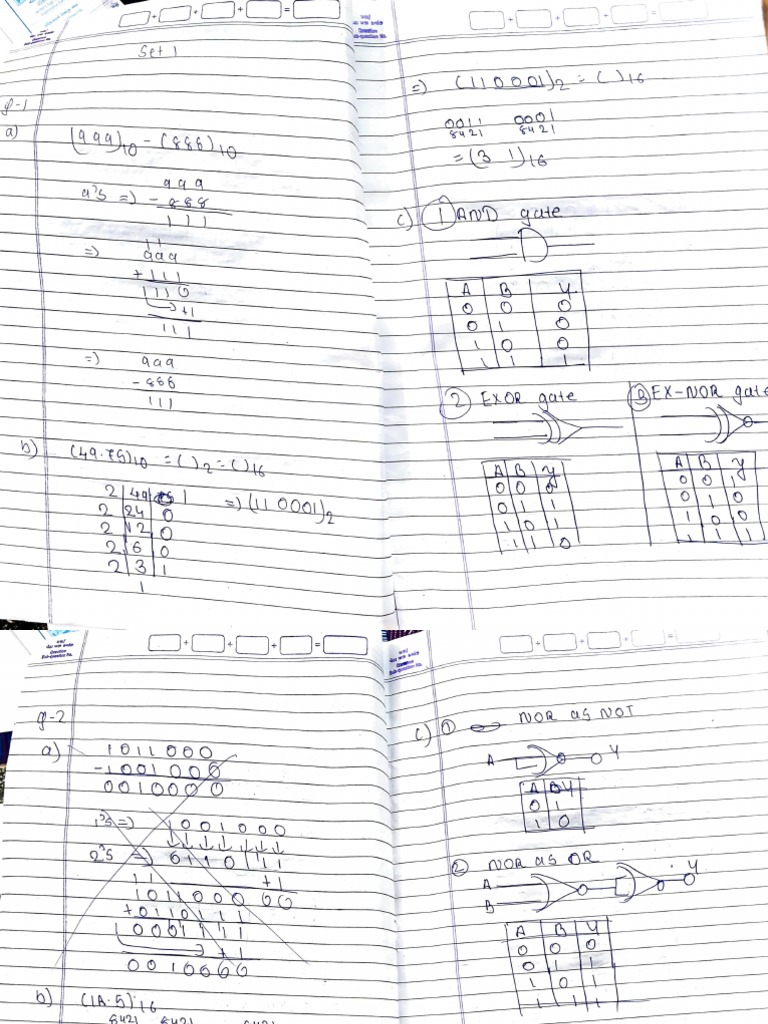 Set 1
Q-1
a)
(999)10 - (888)10
9's => 999
- 888
111
11
=> 999
+ 111
1110
+1
111
=> 999
- 888
111
b) (49.75)10 = ( )2 = ( )16
2 49 1
2 24 0 => (110001)2
2 12 0
2 6 0
2 3 1
1
=> (110001)2 = ( )16
0011 0001
8421 8421
= (3 1)16
c) 1 AND gate
A B Y
0 0 0
0 1 0
1 0 0
1 1 1
2 EXOR gate
A B Y
0 0 0
0 1 1
1 0 1
1 1 0
3 EX-NOR gate
A B Y
0 0 1
0 1 0
1 0 0
1 1 1
Question
Sub-question No.
+ + + =
Q-2
a) 1011000
- 1001000
0010000
1's => 1001000
2's => 0110111
+1
11
+ 0110111
+1
0010000
b) (1A.5)16
8421 8421
c) 1 NOR as NOT
A Y
A Y
0 1
1 0
2 NOR as OR
A
B
Y
A B Y
0 0 0
0 1 1
1 0 1
1 1 1